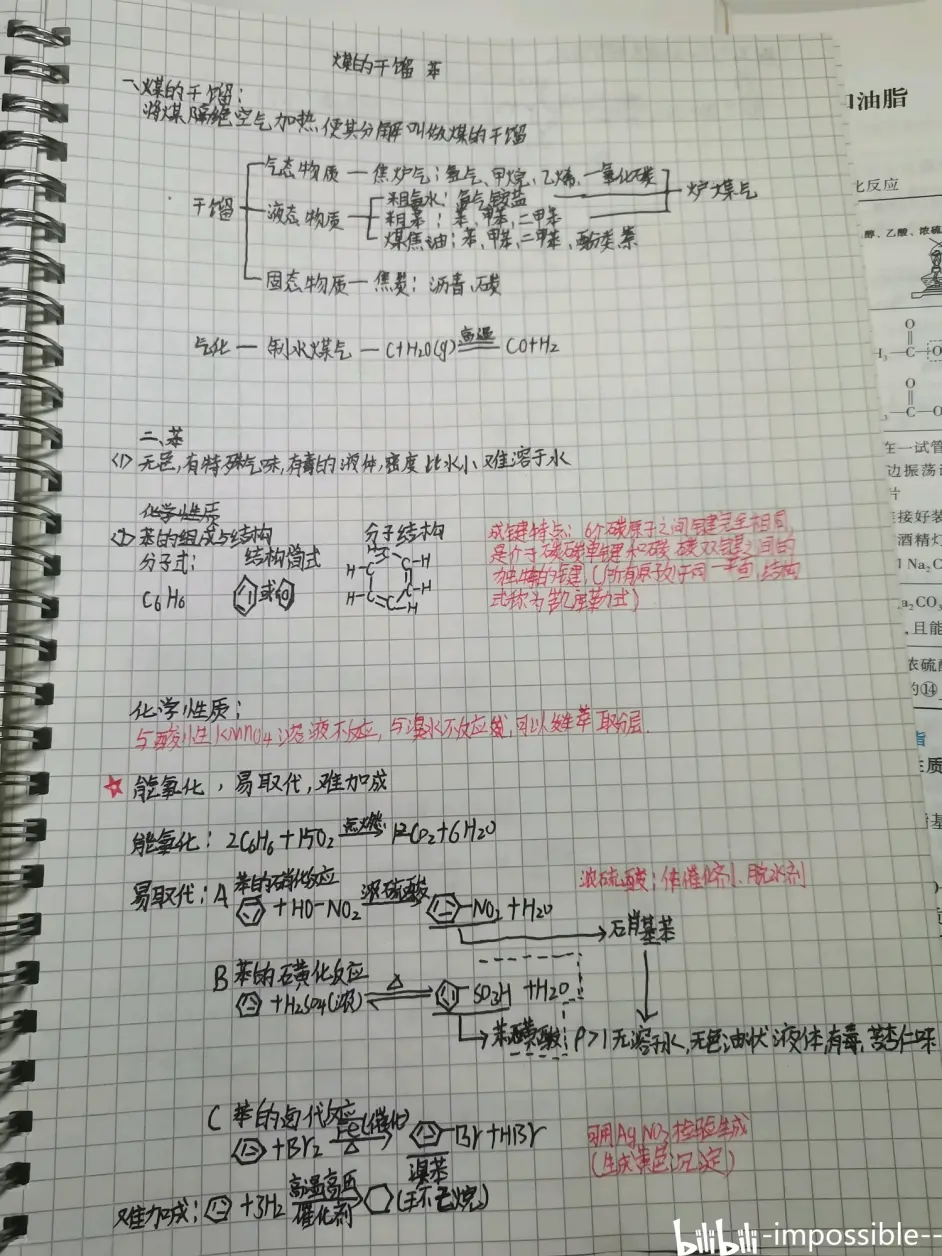 煤的干馏 苯
一、煤的干馏:
将煤隔绝空气加热,使其分解叫做煤的干馏
干馏
气态物质 — 焦炉气:氢气、甲烷、乙烯、一氧化碳
液态物质
粗氨水:氨气、铵盐
粗苯:苯、甲苯、二甲苯
煤焦油:苯、甲苯、二甲苯、酚类、萘
炉煤气
固态物质 — 焦炭:沥青、碳
气化 — 制水煤气 — C+H2O(g) 高温 CO+H2
二、苯
<1> 无色,有特殊气味,有毒的液体,密度比水小 难溶于水
化学性质
<2> 苯的组成与结构
分子式: 结构简式 分子结构
C6H6 或
H H H H H
成键特点:6个碳原子之间键完全相同,
是介于碳碳单键和碳碳双键之间的
独特的键,(所有原子处于同一平面,结构
式称为凯库勒式)
化学性质:
与酸性KMnO4溶液不反应,与溴水不反应,可以发生萃取分层.
☆ 能氧化,易取代,难加成
能氧化:2C6H6+15O2 点燃 12CO2+6H2O
易取代:A 苯的硝化反应
+HO-NO2 浓硫酸 -NO2+H2O
浓硫酸:作催化剂、脱水剂
硝基苯
B 苯的磺化反应
+H2SO4(浓) △ SO3H +H2O
苯磺酸:ρ>1 无溶于水,无色油状液体,有毒,苦杏仁味
C 苯的卤代反应
+Br2 Fe(催化) △ -Br+HBr
溴苯
可用AgNO3检验生成
(生成黄色沉淀)
难加成: +3H2 高温高压 催化剂 (环己烷)
油脂
化反应
醇、乙酸、浓硫
O
C
O
C—O
在一试管
边振荡
片
连接好装
酒精灯
Na2C
a2CO3
,且能
浓硫酸
的⑭
脂
性质
bilibili-impossible--